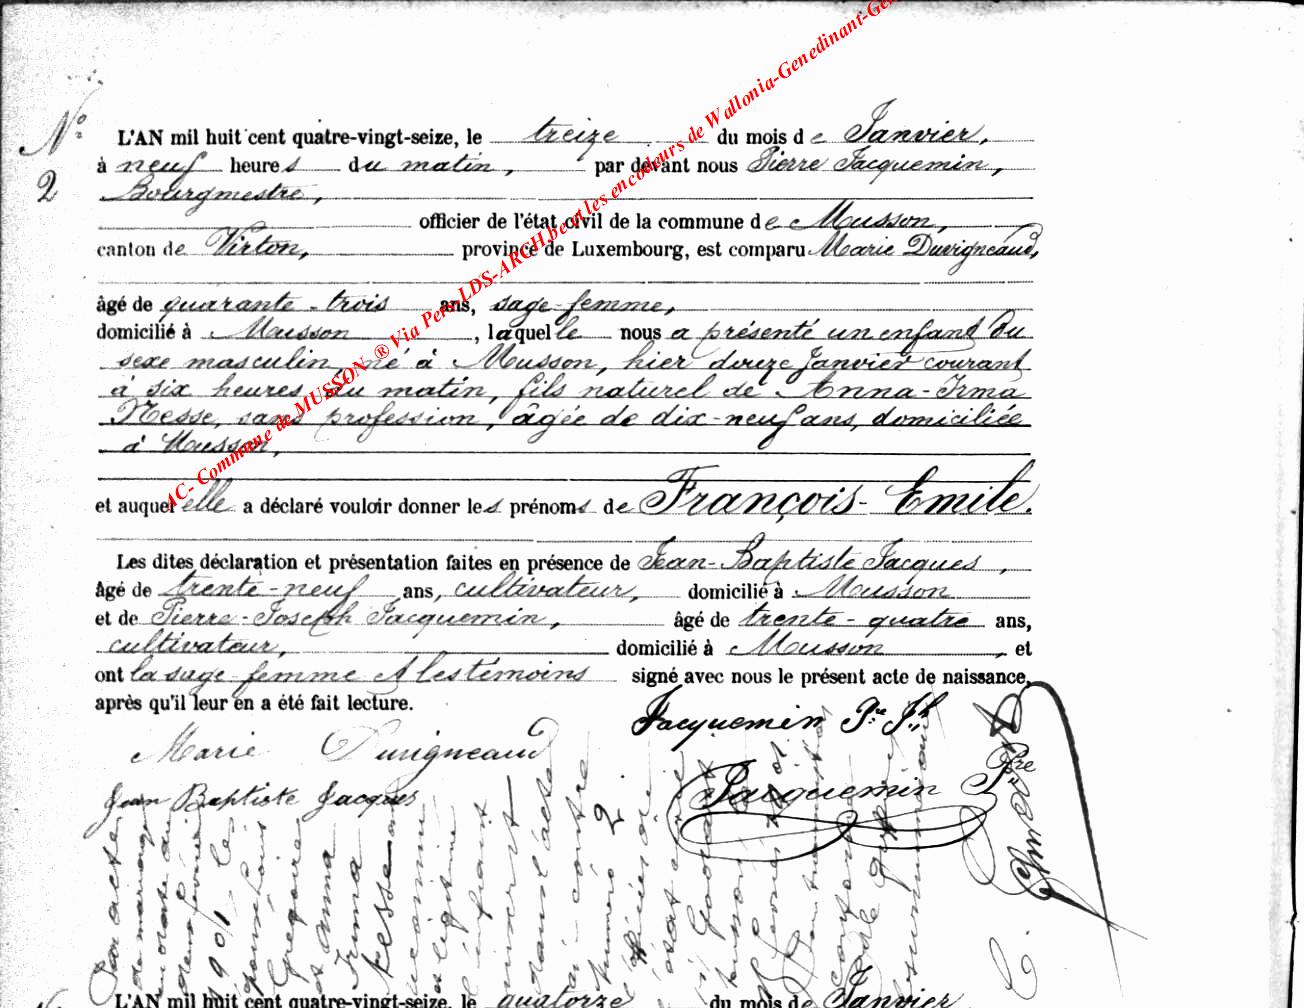 N°
2
L'AN mil huit cent quatre-vingt-seize, le treize du mois de Janvier,
à neuf heures du matin, par devant nous Pierre Jacquemin,
Bourgmestre,
officier de l'état civil de la commune de Musson,
canton de Virton, province de Luxembourg, est comparu Marie Duvigneaud,
âgé de quarante-trois ans, sage-femme,
domicilié à Musson, laquelle nous a présenté un enfant du
sexe masculin, né à Musson, hier douze Janvier courant
à six heures du matin, fils naturel de Anna-Irma
Nesse, sans profession, âgée de dix-neuf ans, domiciliée
à Musson,
et auquel elle a déclaré vouloir donner les prénoms de François-Emile.
Les dites déclaration et présentation faites en présence de Jean-Baptiste Jacques,
âgé de trente-neuf ans, cultivateur, domicilié à Musson
et de Pierre-Joseph Jacquemin, âgé de trente-quatre ans,
cultivateur, domicilié à Musson, et
ont la sage-femme & les témoins signé avec nous le présent acte de naissance,
après qu'il leur en a été fait lecture.
Jacquemin Pre Jh
Marie Duvigneaud
Jacquemin Pre
Jean Baptiste Jacques
Par acte
de mariage
en date du
1901 le
Grégoire
et Anna
Irma
Nesse
l'enfant
inscrit
dans l'acte
ci-contre
numéro 2.
AC- Commune de MUSSON ® Via Pers-LDS-ARCH.be et les encodeurs de Wallonia-Genedinant-Gen
L'AN mil huit cent quatre-vingt-seize, le quatorze du mois de Janvier